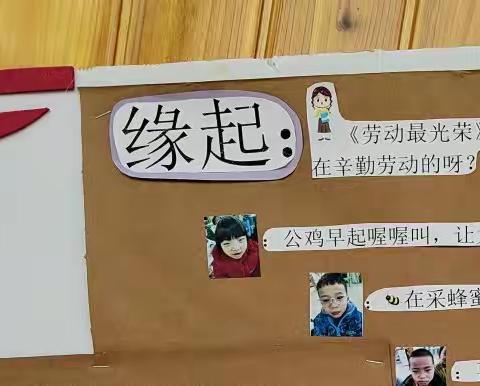 缘起：
《劳动最光荣》
在辛勤劳动的呀?
公鸡早起喔喔叫，让
在采蜂蜜